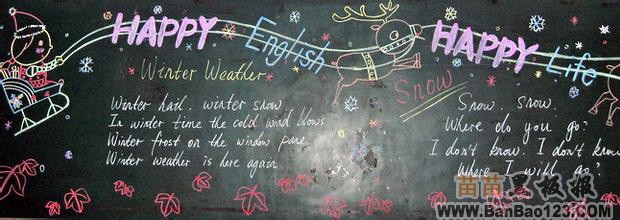 HAPPY English HAPPY Life
Winter Weather
Winter hail, winter snow,
In winter time the cold wind blows
Winter frost on the window pane
Winter weather is here again
Snow
Snow, Snow,
Where do you go?
I don't know. I don't know
Where I will go?
苗苗黑板报
WWW.BANBAO123.COM